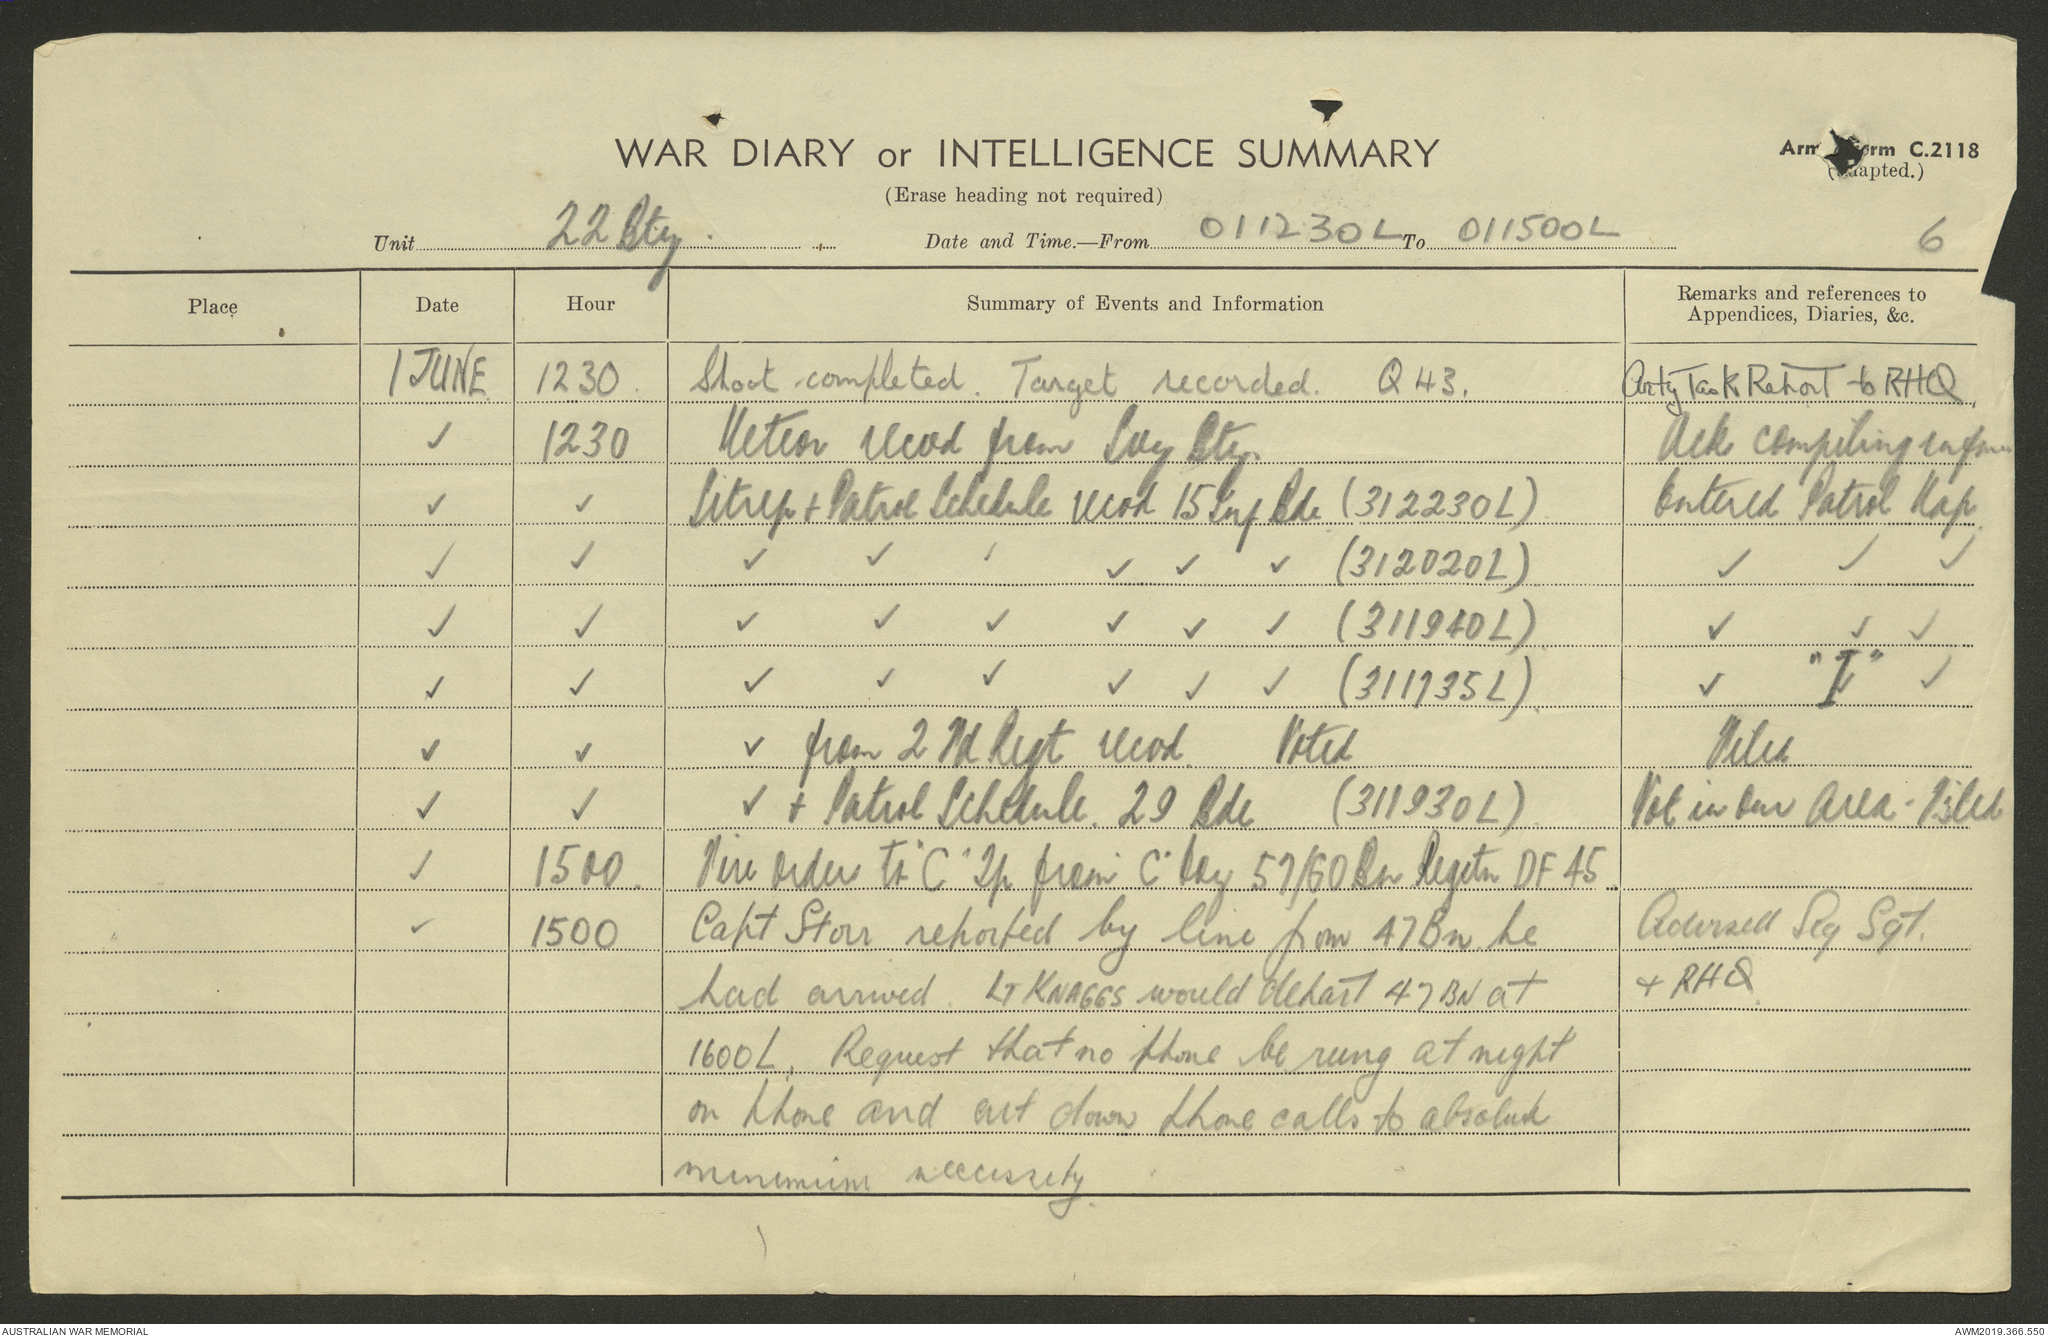 WAR DIARY or INTELLIGENCE SUMMARY
Army Form C.2118
(Erase heading not required)
(adapted.)
Unit 22 Bty. Date and Time.—From 011230L To 011500L
6
Place Date Hour Summary of Events and Information Remarks and references to Appendices, Diaries, &c.
1 JUNE 1230 Shoot completed. Target recorded. Q 43. Arty Task Report to RHQ
✓ 1230 Meteor recvd from Svy Bty. compiling
✓ ✓ Sitrep + Patrol Schedule recvd 15 Inf Bde (312230L) Entered Patrol Map.
✓ ✓ ✓ ✓ ✓ ✓ ✓ ✓ (312020L) ✓ ✓ ✓
✓ ✓ ✓ ✓ ✓ ✓ ✓ ✓ (311940L) ✓ ✓ ✓
✓ ✓ ✓ ✓ ✓ ✓ ✓ ✓ (311735L) ✓ "I" ✓
✓ ✓ ✓ from 2 Fd Regt recvd. Noted Filed
✓ ✓ ✓ + Patrol Schedule. 29 Bde (311930L) Not in our Area - Filed
✓ 1500. Fire orders to "C" Tp from "C" Coy 57/60 Bn Regstn DF 45
✓ 1500 Capt Storr reported by line from 47 Bn he Advised Sig Sgt.
had arrived. LT KNAGGS would depart 47 BN at + RHQ.
1600L. Request that no phone be rung at night
on phone and cut down phone calls to absolute
minimum necessity.
AUSTRALIAN WAR MEMORIAL
AWM2019.366.550